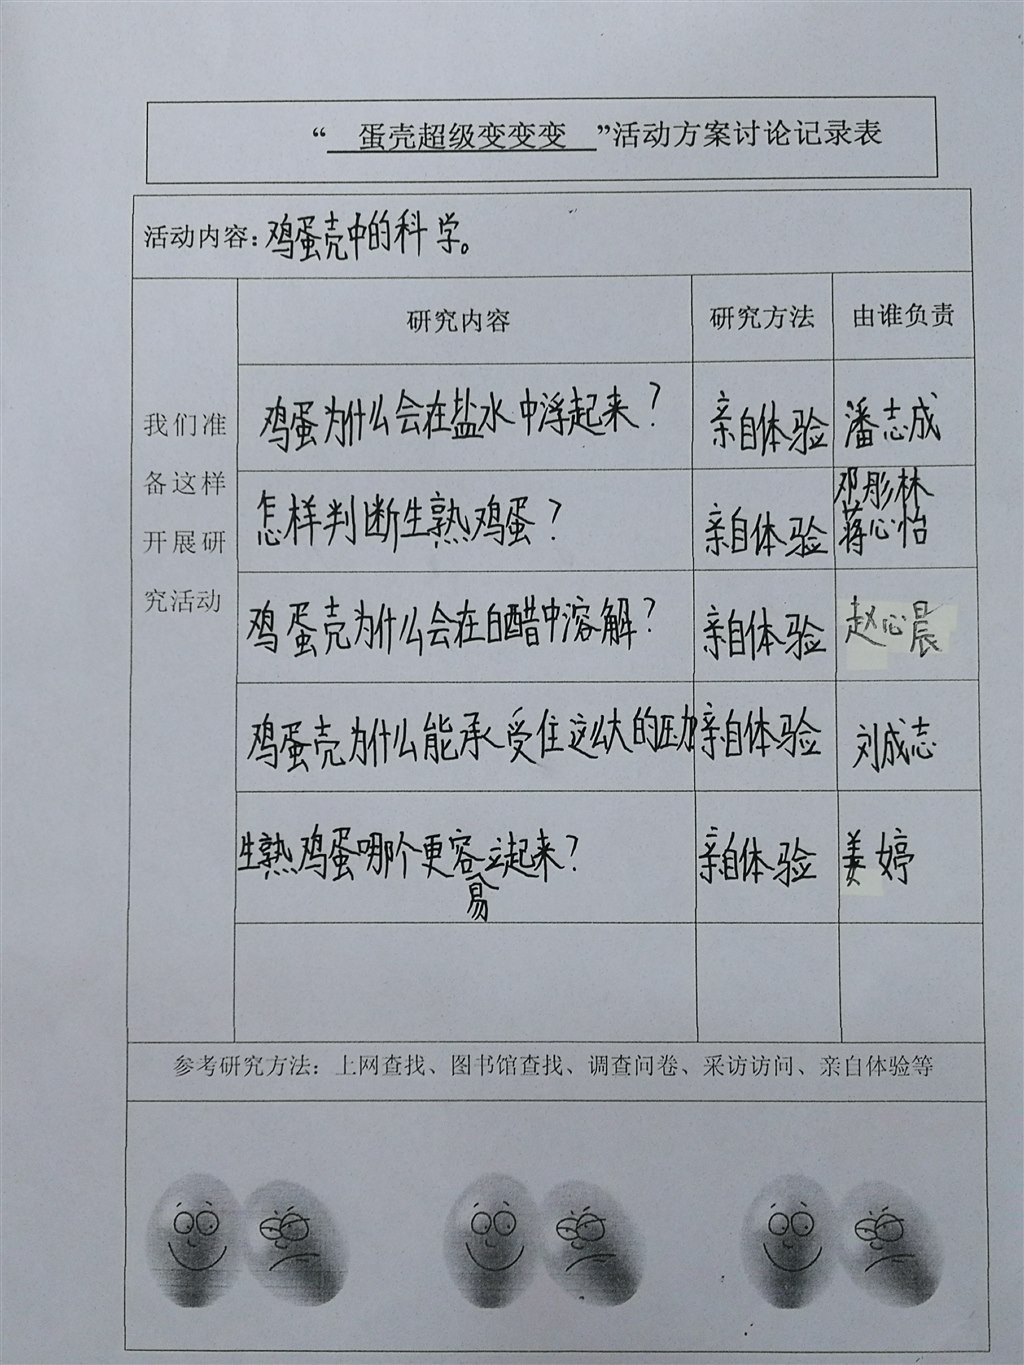 “ 蛋壳超级变变变 ”活动方案讨论记录表
活动内容：鸡蛋壳中的科学。
研究内容 研究方法 由谁负责
我们准
备这样
开展研
究活动
鸡蛋为什么会在盐水中浮起来？ 亲自体验 潘志成
怎样判断生熟鸡蛋？ 亲自体验 邓彤林
蒋心怡
鸡蛋壳为什么会在白醋中溶解？ 亲自体验 赵心晨
鸡蛋壳为什么能承受住这么大的压力 亲自体验 刘成志
生熟鸡蛋哪个更容易立起来？ 亲自体验 姜婷
参考研究方法：上网查找、图书馆查找、调查问卷、采访访问、亲自体验等